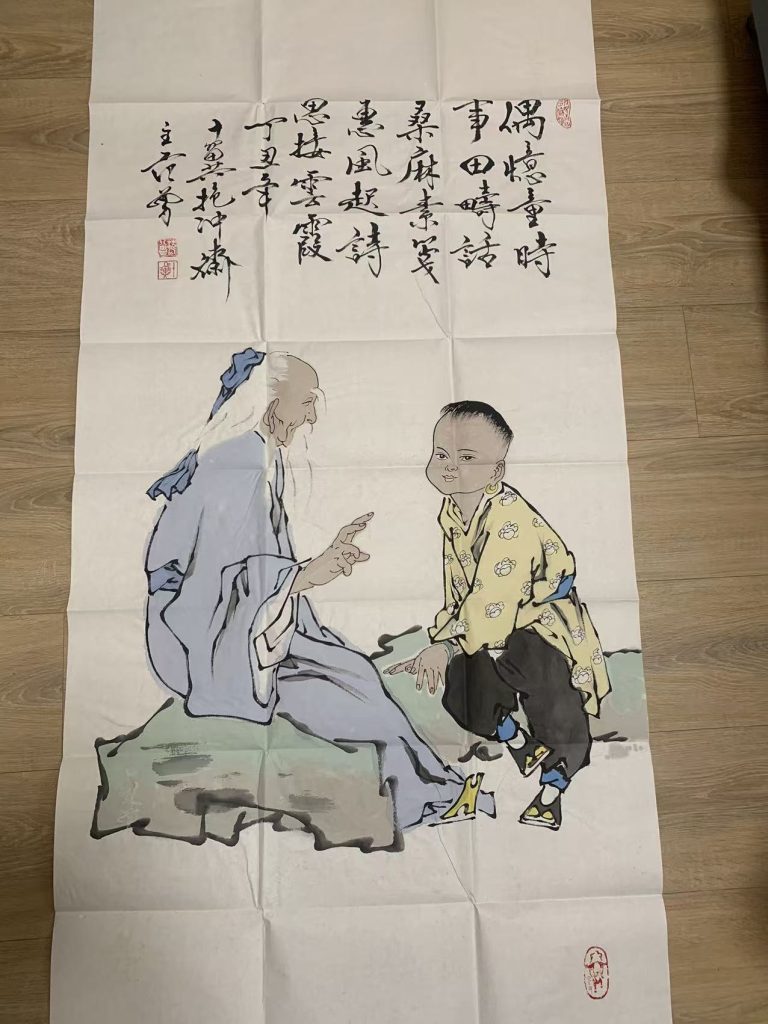 偶憶童時
事田疇話
桑麻素箋
惠風起詩
思接雲霞
丁丑年
十翼抱冲齋
主范曾